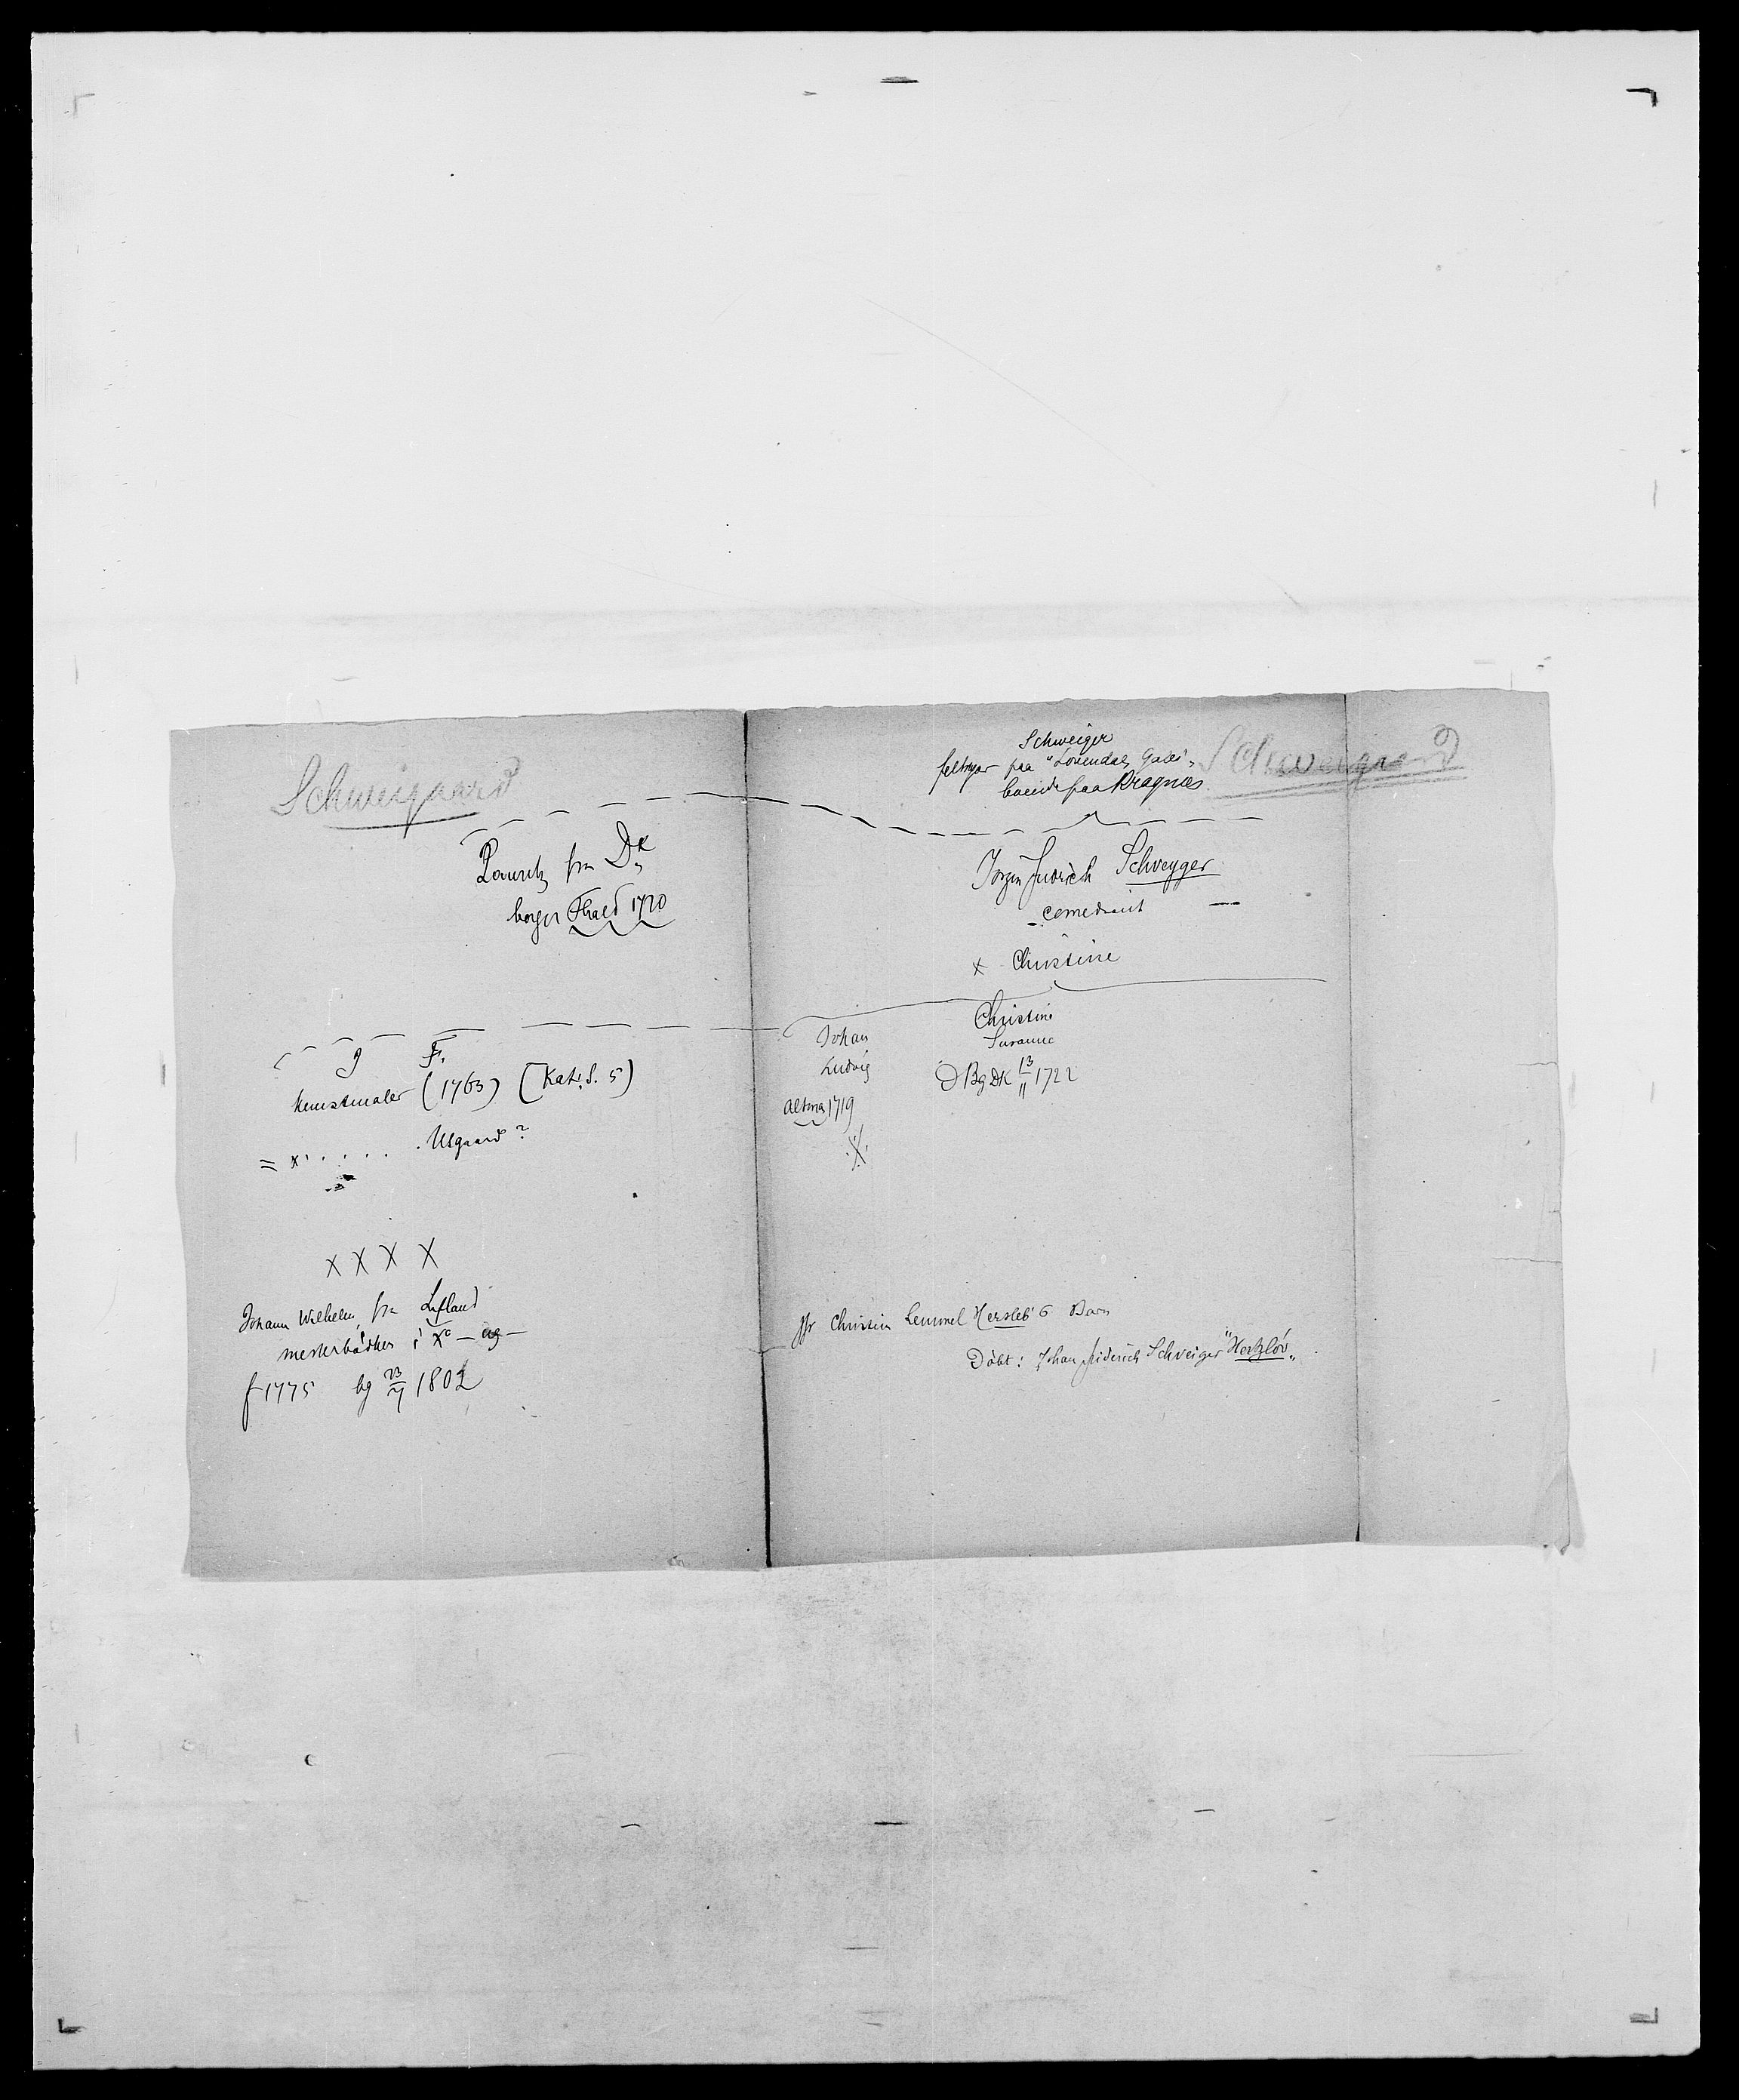 Schweigaard
Lauritz fra Dk
borger Fhald 1720
g F.
kunstmaler (1763) (Kat. S. 5)
= x . . . . . Usgaard ?
X X X X
Johann Wilhelm fra Lifland
mesterbødker i Xa
f 1775 bg 23/7 1802
Schweigaard
Schweiger
paa "Lövendals Gade"
boende paa Kragnæs
Jørgen Fridrich Schweyger
comediant
x Christine
Johan
Ludvig
Altona 1719
Christine
Susanne
D Bg DK 13/11 1722
Christian Lemmel Hersleb 6 Barn
Döbt: Johan Friderich Schveiger "Hertzlöv"